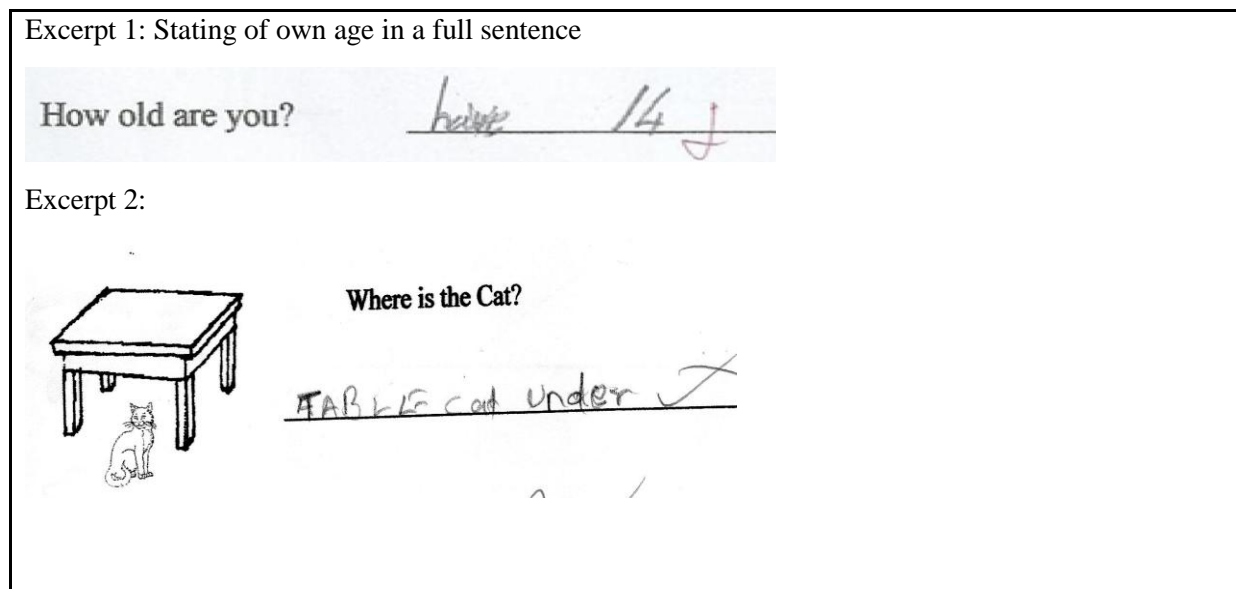 Excerpt 1: Stating of own age in a full sentence
How old are you? have 14
Excerpt 2:
Where is the Cat?
TABLE cat under